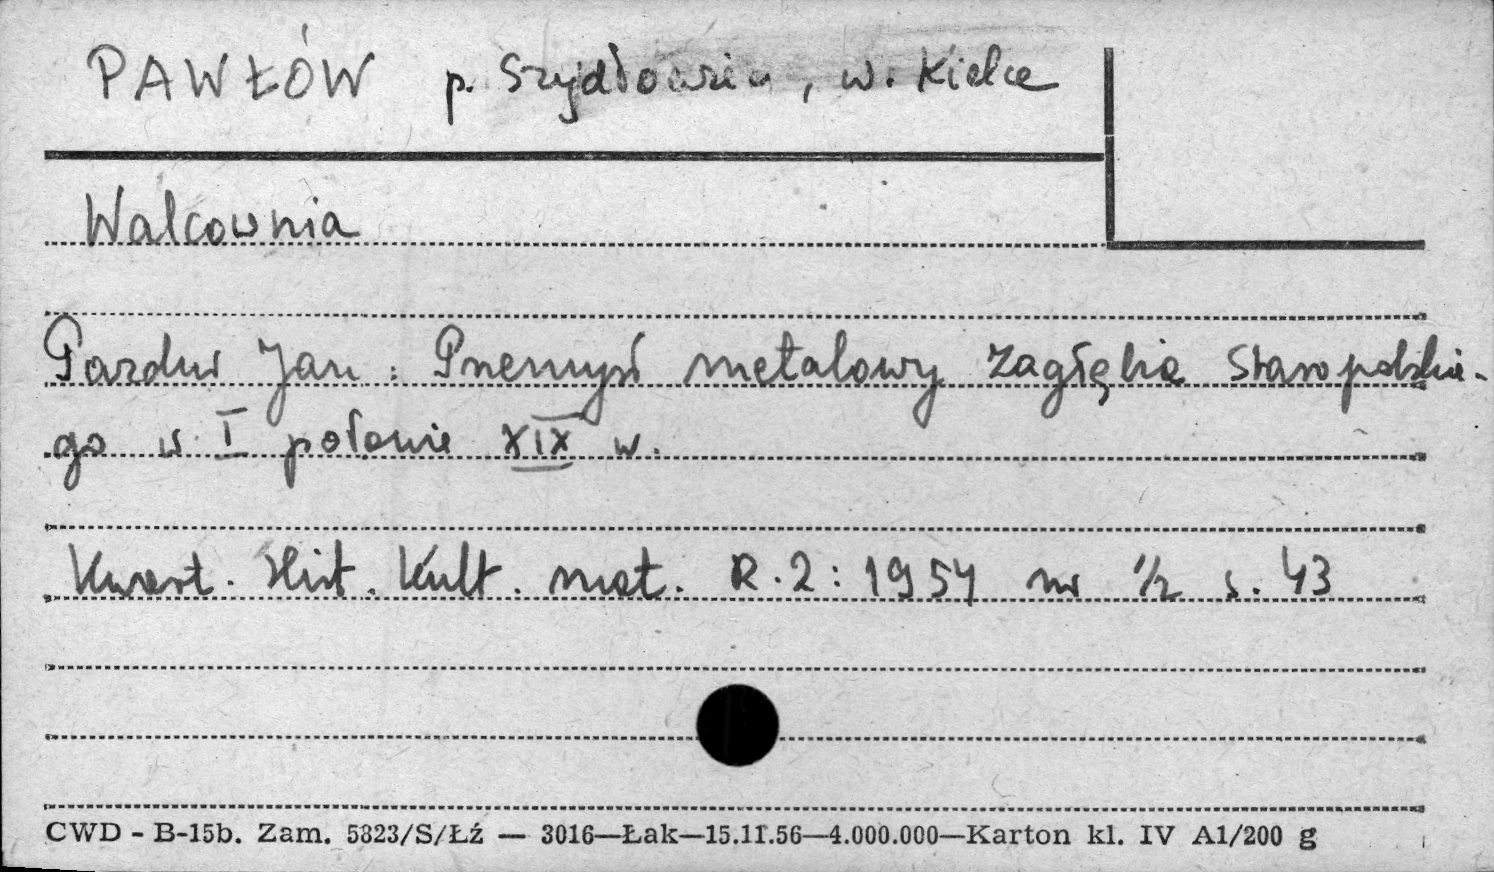 PAWŁÓW p. Szydłowiec, w. Kielce
Walcownia
Pazdur Jan : Przemysł metalowy Zagłębia Staropolskie-
go w I połowie XIX w.
Kwart. Hist. Kult. mat. R. 2 : 1954 nr 1/2 s. 43
CWD - B-15b. Zam. 5823/S/Łź — 3016—Łak—15.11.56—4.000.000—Karton kl. IV A1/200 g